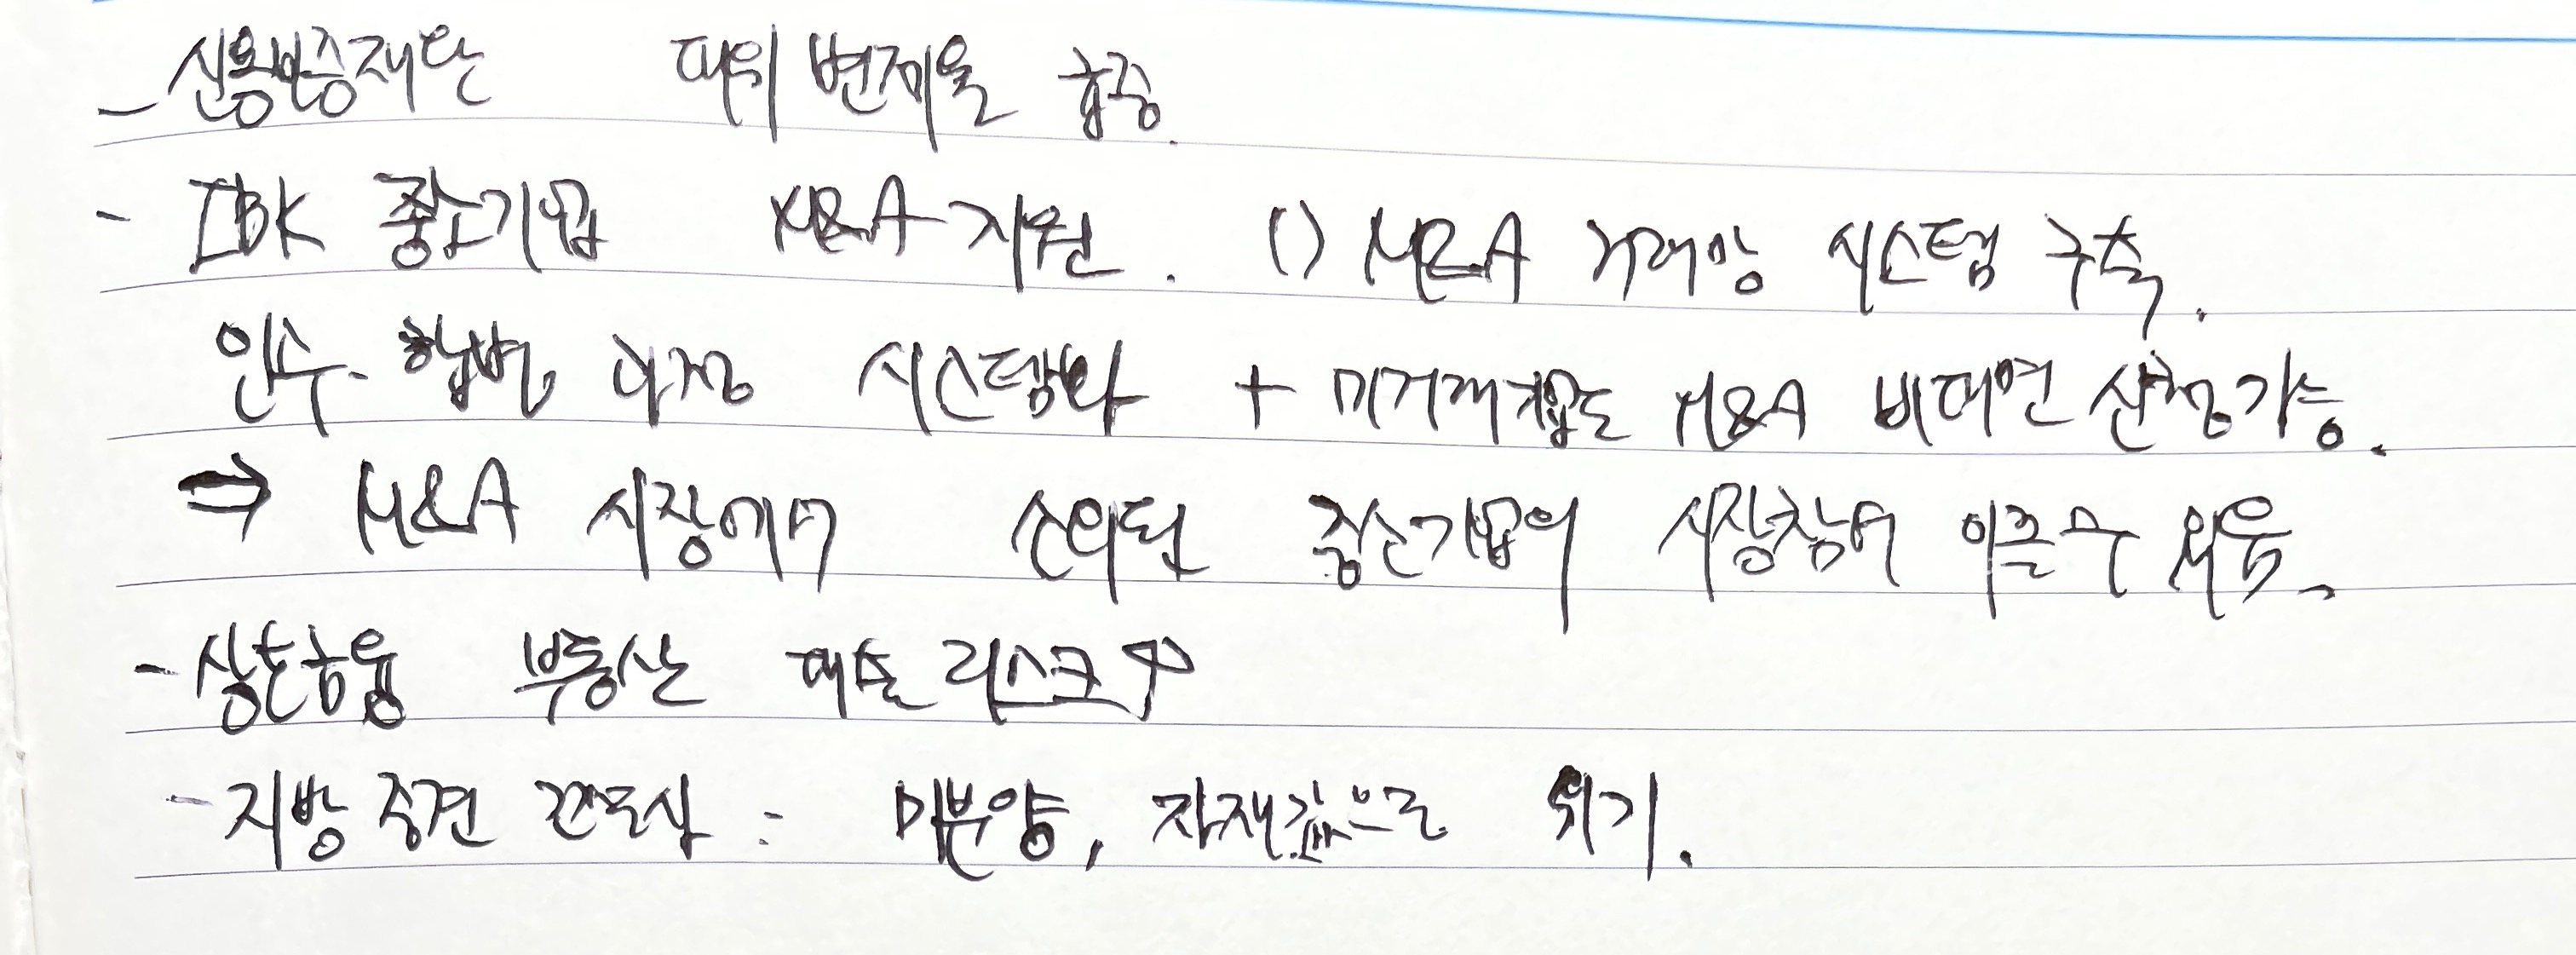 - 신용보증재단 대위 변제율 급증.
- IBK 중소기업 M&A 지원. () M&A 거래망 시스템 구축.
인수·합병 과정 시스템화 + 미거래기업도 M&A 비대면 신청가능.
⇒ M&A 시장에서 소외된 중소기업의 시장참여 이끌 수 있음.
- 상호금융 부동산 대출 리스크↑
- 지방 중견 건설사 : 미분양, 자재값으로 위기.